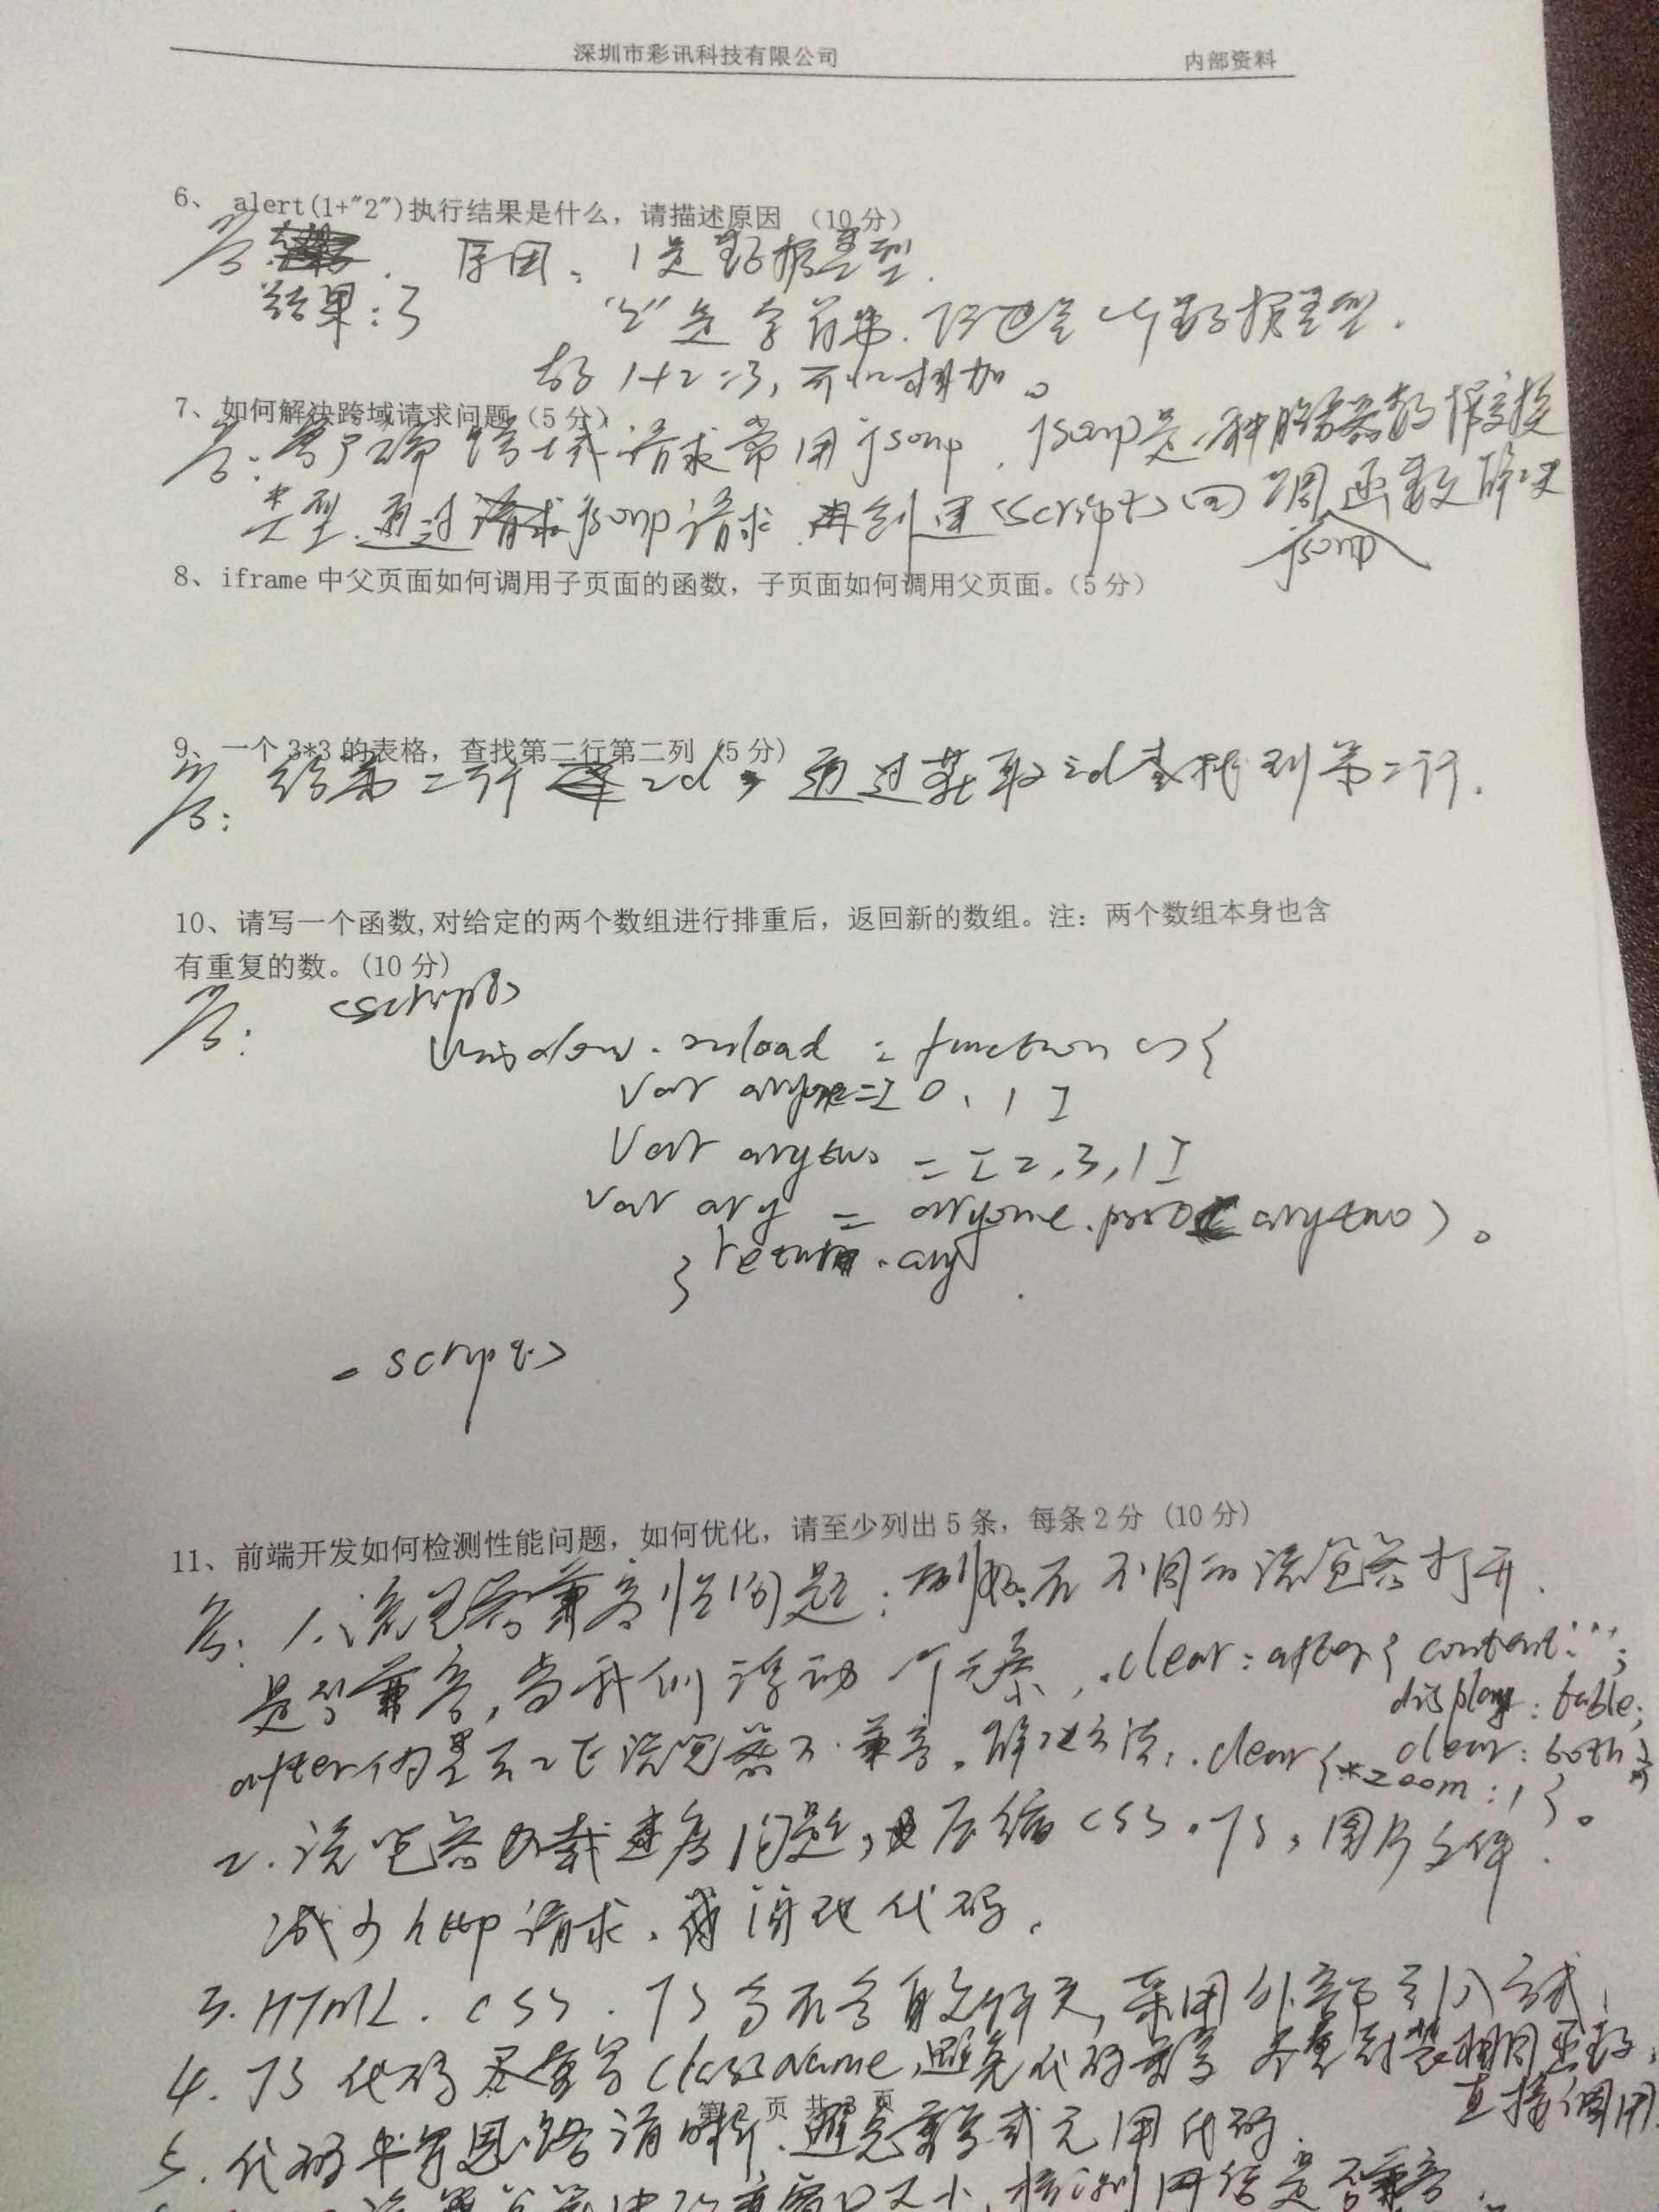 深圳市彩讯科技有限公司 内部资料
6、 alert(1+"2")执行结果是什么，请描述原因 （10 分）
答: 原因: 1是数据类型.
结果:3 "2"是字符串. 但也是一个数据类型.
故 1+2=3, 可以相加。
7、如何解决跨域请求问题（5 分）
答: 跨域请求常用jsonp, jsonp是一种服务器数据交换
类型.通过请求jsonp请求 再创建<script>回调函数解决
jsonp
8、iframe 中父页面如何调用子页面的函数，子页面如何调用父页面。（5 分）
9、一个 3*3 的表格，查找第二行第二列（5 分）
答: 给第二行 id, 通过获取id查找到第二行.
10、请写一个函数,对给定的两个数组进行排重后，返回新的数组。注：两个数组本身也含
有重复的数。(10 分)
答: <script>
window.onload = function () {
var aryone=[0,1]
Var arytwo = [2,3,1]
var ary = aryone. arytwo)。
return.ary
}
script>
11、前端开发如何检测性能问题，如何优化，请至少列出 5 条，每条 2 分（10 分）
答: 1.浏览器兼容性问题: 在不同的浏览器打开.
是否兼容,当我们浮动一个元素, .clear:after{ content:"";
display: table;
clear: both;}
after伪 浏览器不兼容。解决方法: .clear{*zoom:1}。
2.浏览器加载速度问题, 压缩css.JS,图片文件.
减少http请求, 代码.
3.HTML.css.JS 文件夹,采用外部引入方式,
4.JS代码尽量写className,避免代码 尽量封装相同函数,
直接调用
第 2 页 共 3 页
5.代码书写思路清晰.避免 或无用代码.